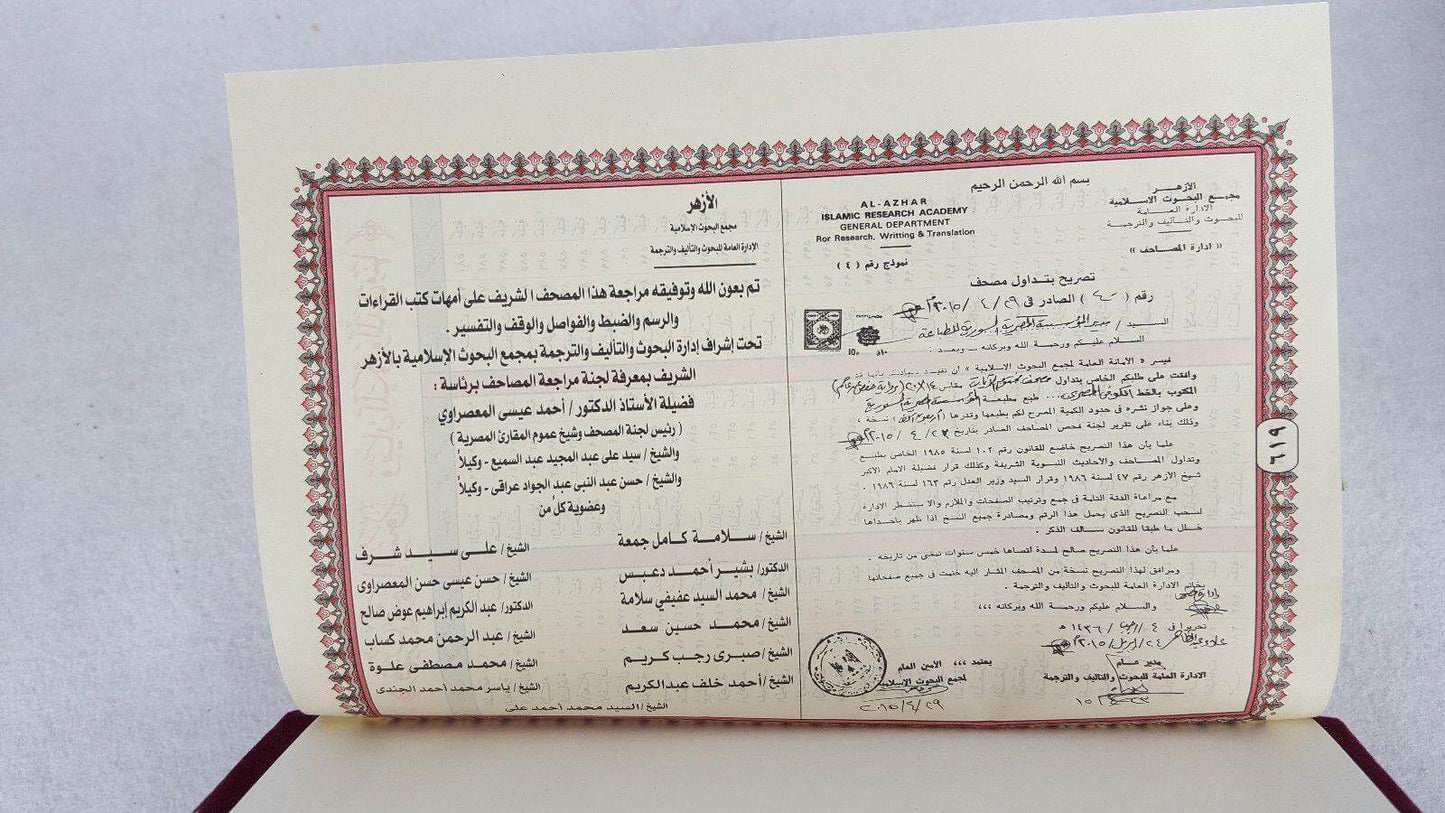 الأزهر
مجمع البحوث الاسلامية
الادارة العامة
للبحوث والتأليف والترجمة
« ادارة المصاحف »
بسم الله الرحمن الرحيم
AL-AZHAR
ISLAMIC RESEARCH ACADEMY
GENERAL DEPARTMENT
Ror Research, Writting & Translation
نموذج رقم ( ٤ )
تصريح بتداول مصحف
رقم ( ) الصادر فى ٢٩ / ٤ / ٢٠١٥ م
السيد /
السلام عليكم ورحمة الله وبركاته ... وبعد .
الأمانة العامة لمجمع البحوث الاسلامية » أن تفيد
وافقت على طلبكم الخاص بتداول مصحف مقاس ١٤×٢٠
المكتوب بالخط طبع مطبعة
وعلى جواز نشره فى حدود الكمية المصرح لكم بطبعها وقدرها ( ) نسخة ،
وذلك بناء على تقرير لجنة فحص المصاحف الصادر بتاريخ ٢٣ / ٤ / ٢٠١٥ م
علما بأن هذا التصريح خاضع للقانون رقم ١٠٢ لسنة ١٩٨٥ الخاص بطبع
وتداول المصاحف والأحاديث النبوية الشريفة وكذلك قرار فضيلة الامام الأكبر
شيخ الأزهر رقم ٤٧ لسنة ١٩٨٦ وقرار السيد وزير العدل رقم ١٦٣ لسنة ١٩٨٦ .
مع مراعاة الدقة التامة فى جمع وترتيب الصفحات والملازم والا ستضطر الادارة
لسحب التصريح الذى يحمل هذا الرقم ومصادرة جميع النسخ اذا ظهر باحداها
خلل ما طبقا للقانون سالف الذكر .
علما بأن هذا التصريح صالح لمدة أقصاها خمس سنوات تمضى من تاريخه .
ومرافق لهذا التصريح نسخة من المصحف المشار اليه ختمت فى جميع صفحاتها
بخاتم الادارة العامة للبحوث والتأليف والترجمة .
والسلام عليكم ورحمة الله وبركاته ،،،
تحريرا فى ٤ / رجب / ١٤٣٦ هـ
٢٤ / ابريل / ٢٠١٥ م
مدير عام
الادارة العامة للبحوث والتأليف والترجمة
يعتمد ،،، الأمين العام
لمجمع البحوث الاسلامية
٢٩ / ٤ / ٢٠١٥
٦١٩
الأزهر
مجمع البحوث الاسلامية
الإدارة العامة للبحوث والتأليف والترجمة
تم بعون الله وتوفيقه مراجعة هذا المصحف الشريف على أمهات كتب القراءات
والرسم والضبط والفواصل والوقف والتفسير .
تحت إشراف إدارة البحوث والتأليف والترجمة بمجمع البحوث الإسلامية بالأزهر
الشريف بمعرفة لجنة مراجعة المصاحف برئاسة :
فضيلة الأستاذ الدكتور / أحمد عيسى المعصراوي
( رئيس لجنة المصحف وشيخ عموم المقارئ المصرية )
والشيخ / سيد على عبد المجيد عبد السميع - وكيلاً
والشيخ / حسن عبد النبى عبد الجواد عراقى - وكيلاً
وعضوية كلٌ من
الشيخ / سلامة كامل جمعة
الشيخ / على سيد شرف
الدكتور / بشير أحمد دعبس
الشيخ / حسن عيسى حسن المعصراوى
الشيخ / محمد السيد عفيفي سلامة
الدكتور / عبد الكريم إبراهيم عوض صالح
الشيخ / محمد حسين سعد
الشيخ / عبد الرحمن محمد كساب
الشيخ / صبرى رجب كريم
الشيخ / محمد مصطفى علوة
الشيخ / أحمد خلف عبد الكريم
الشيخ / ياسر محمد أحمد الجندى
الشيخ / السيد محمد أحمد على